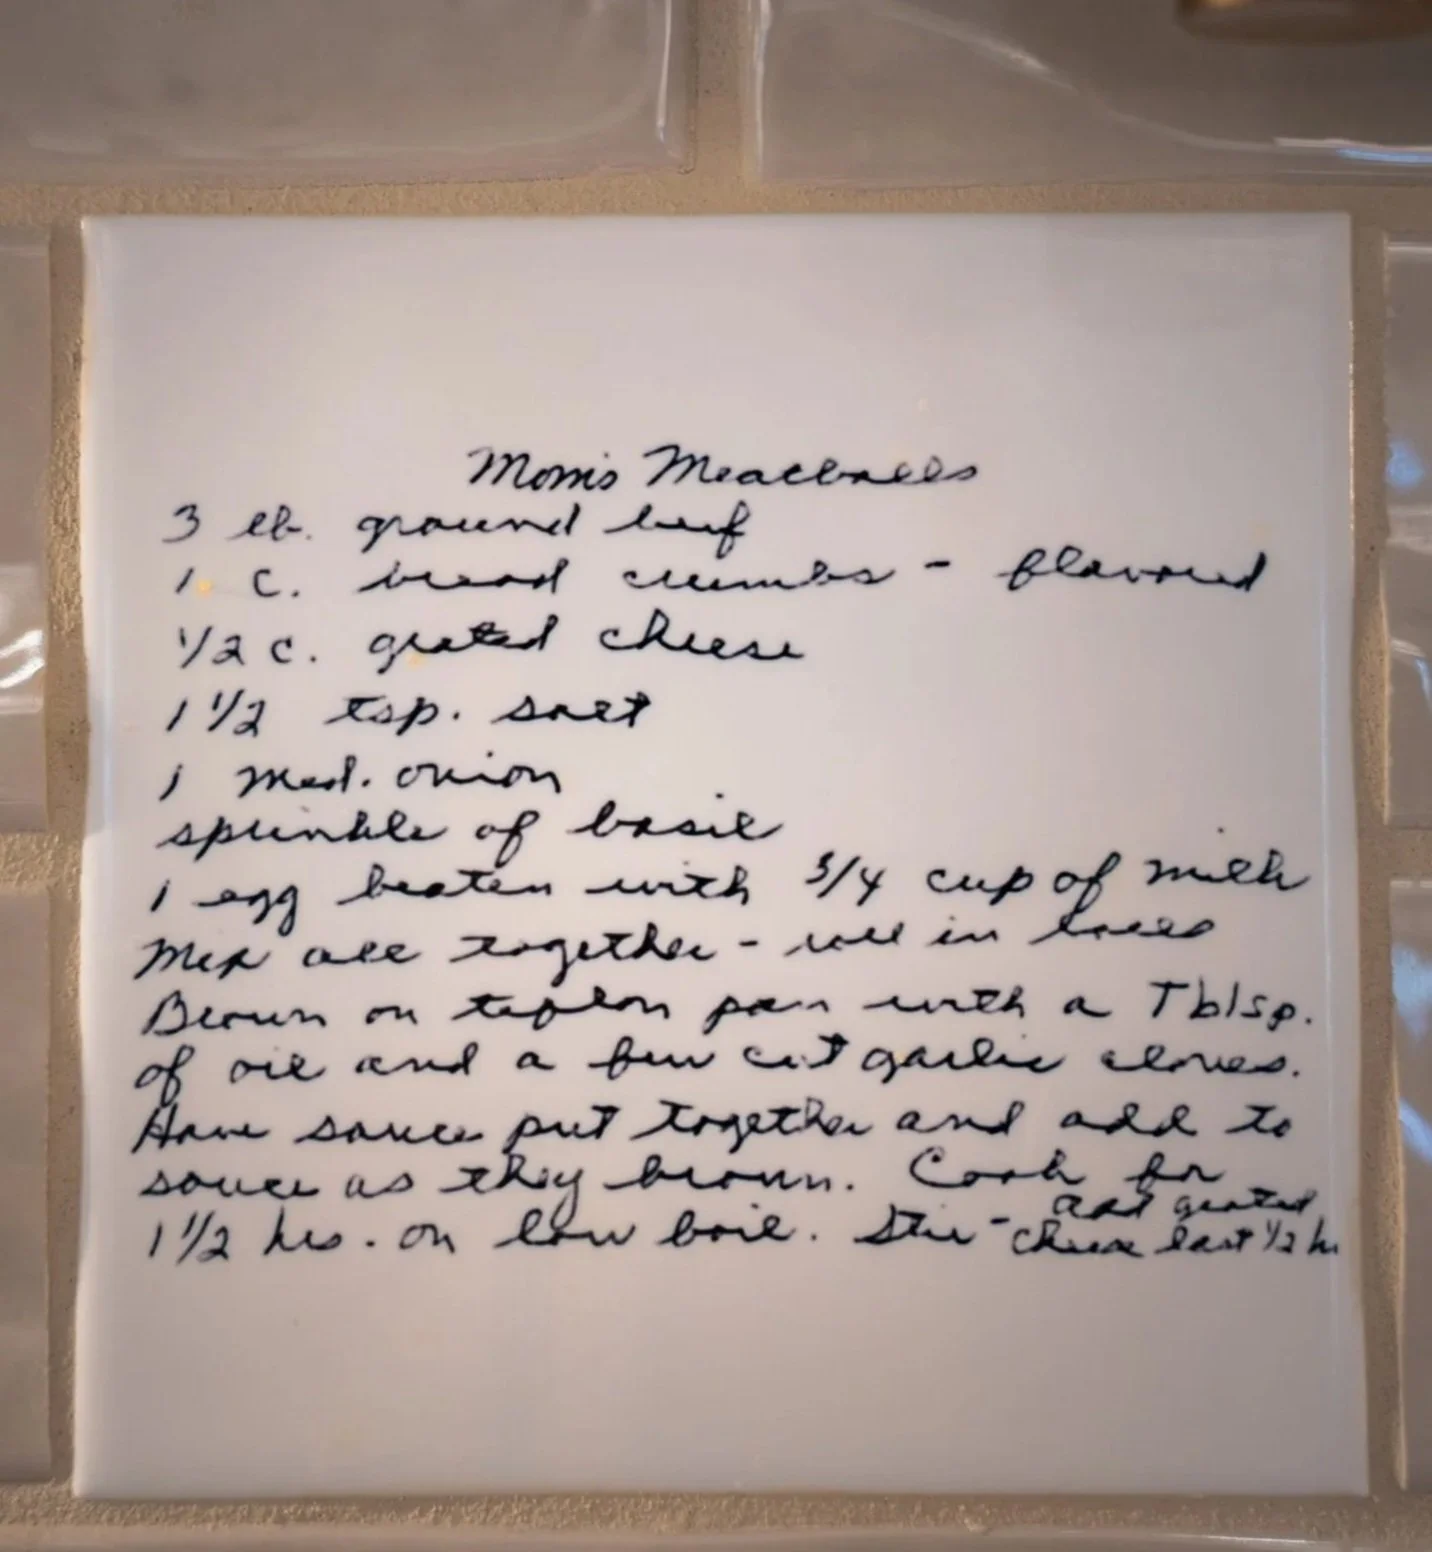 Mom's Meatballs
3 lb. ground beef
1 c. bread crumbs - flavored
1/2 c. grated cheese
1 1/2 tsp. salt
1 med. onion
sprinkle of basil
1 egg beaten with 3/4 cup of milk
Mix all together - roll in balls
Brown on teflon pan with a Tblsp.
of oil and a few cut garlic cloves.
Have sauce put together and add to
sauce as they brown. Cook for
1 1/2 hrs. on low boil. Stir - add grated
cheese last 1/2 hr